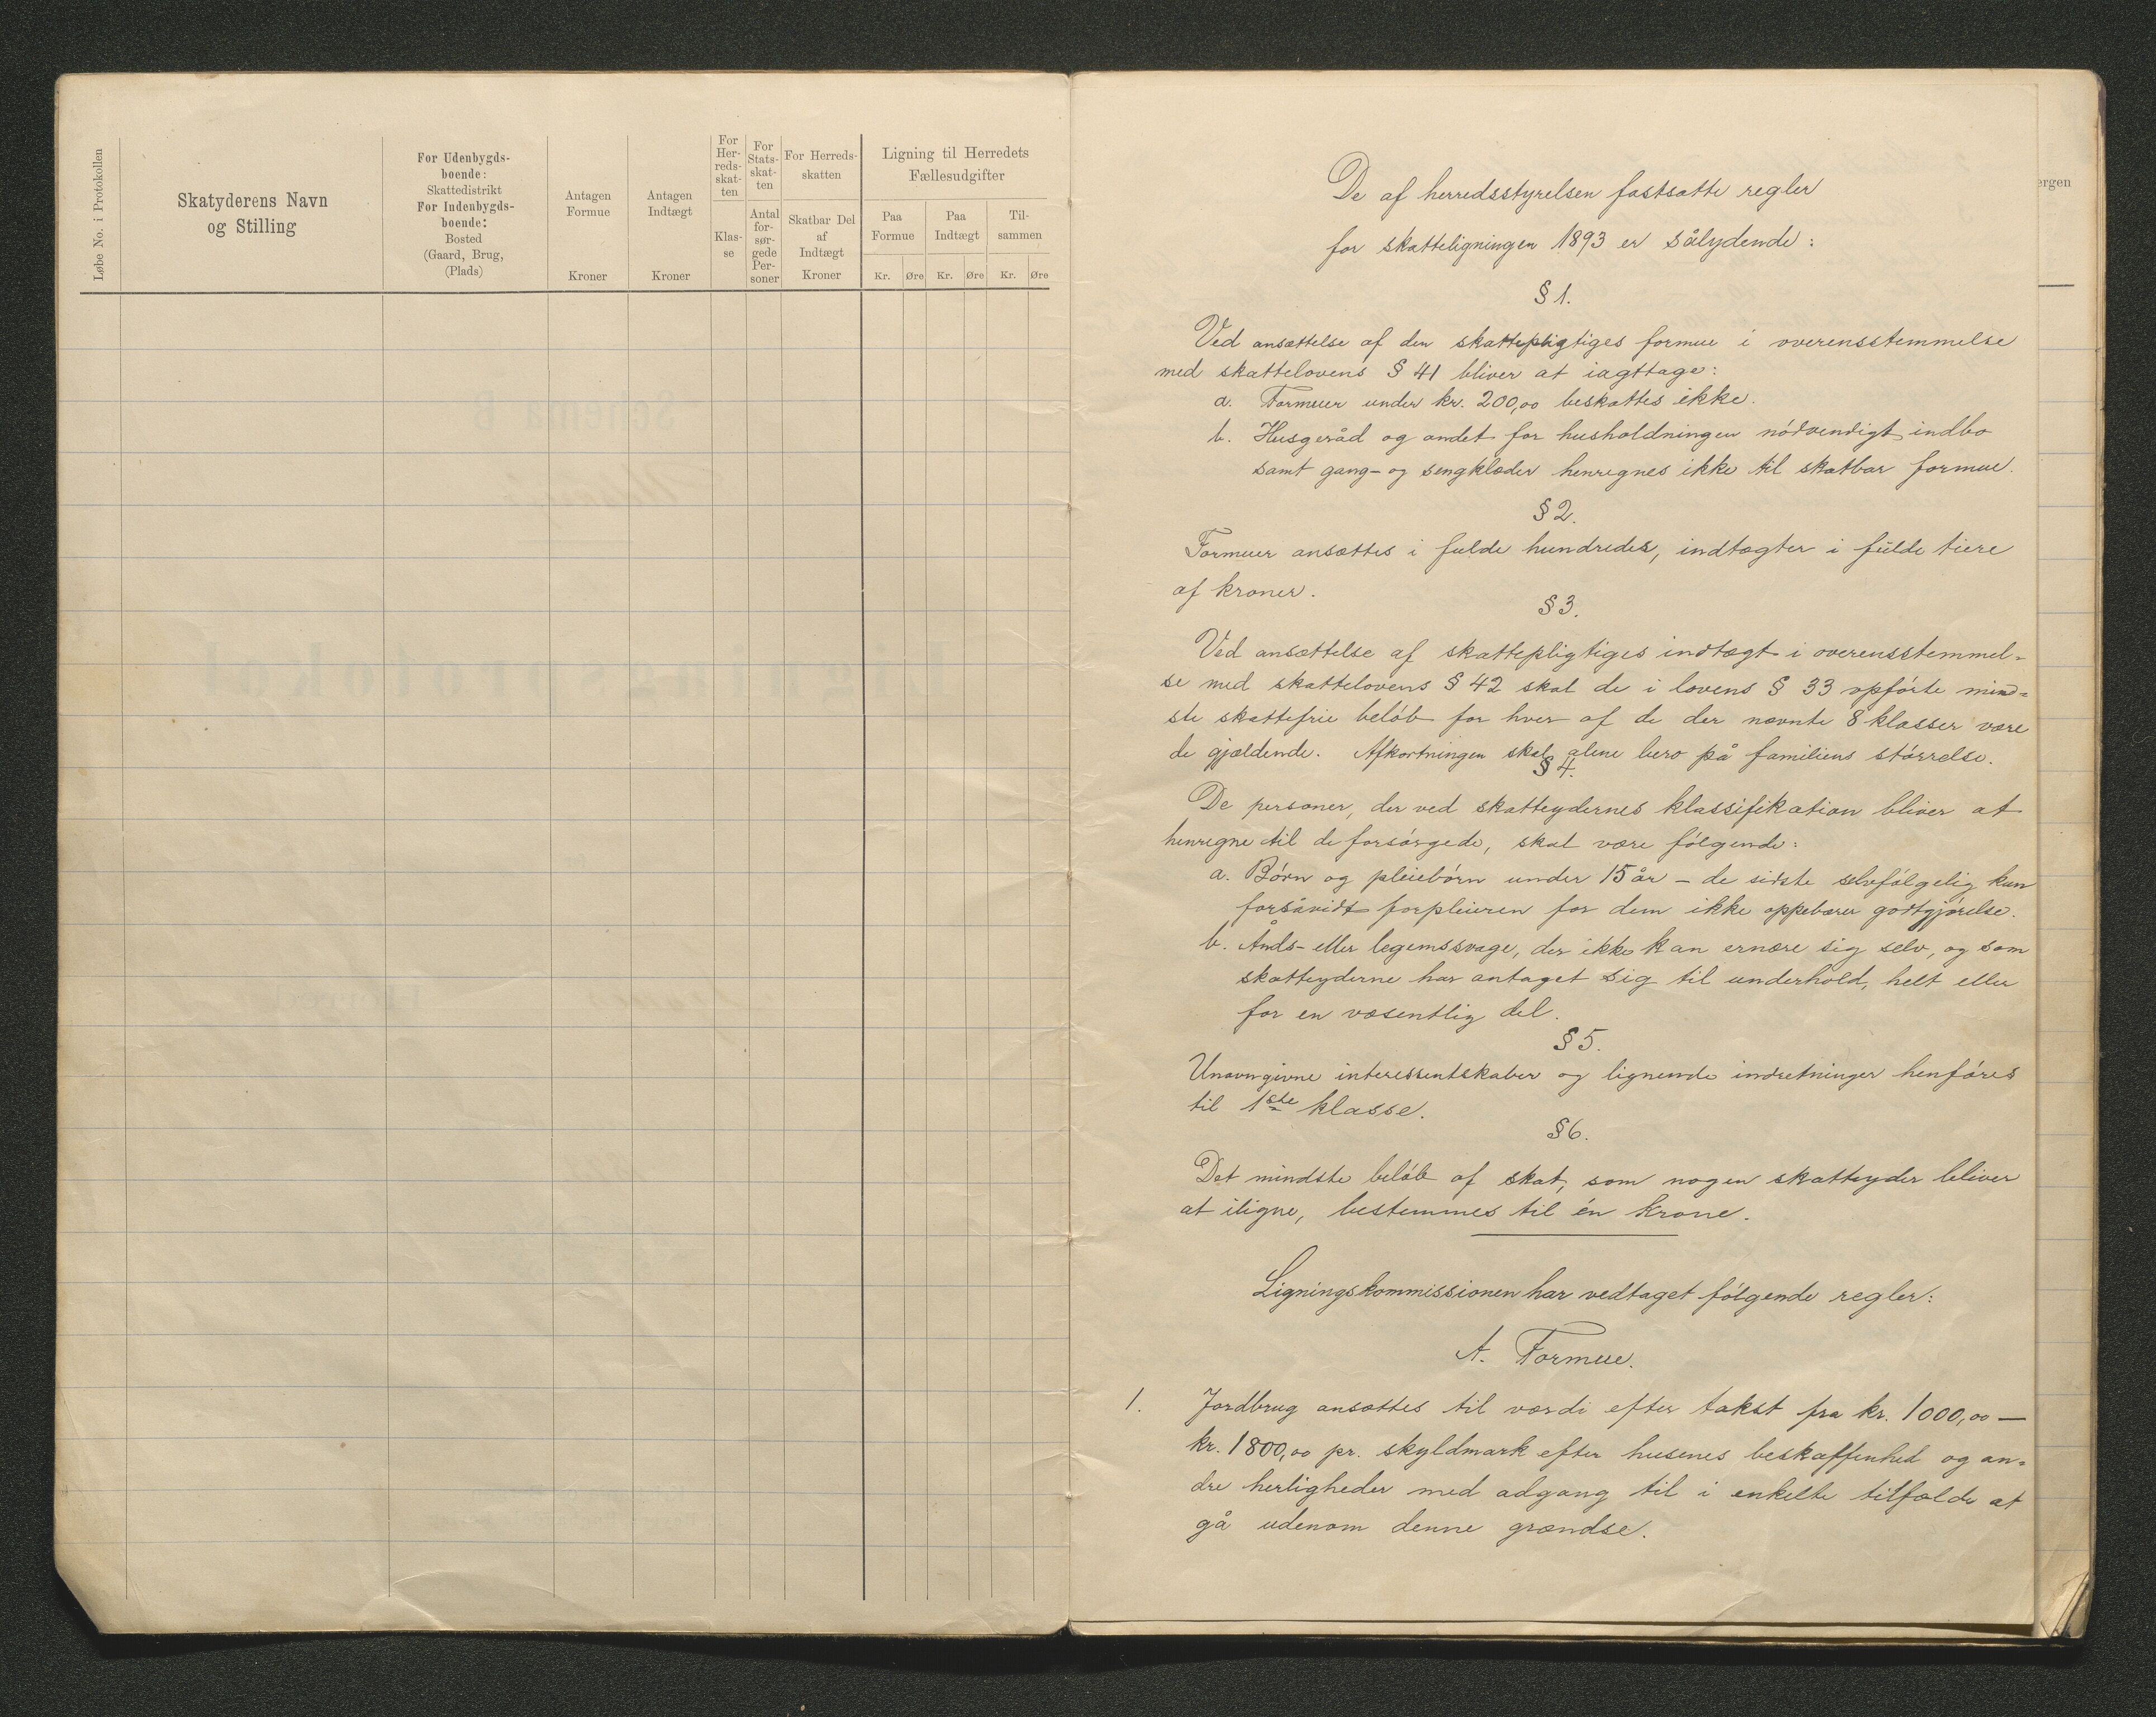 Løbe No. i Protokollen
Skatyderens Navn
og Stilling
For Udenbygds-
boende:
Skattedistrikt
For Indenbygds-
boende:
Bosted
(Gaard, Brug,
(Plads)
Antagen
Formue
Kroner
Antagen
Indtægt
Kroner
For
Her-
reds-
skat-
ten
Klas-
se
For
Stats-
skat-
ten
Antal
for-
sør-
gede
Per-
soner
For Herreds-
skatten
Skatbar Del
af
Indtægt
Kroner
Ligning til Herredets
Fællesudgifter
Paa
Formue
Paa
Indtægt
Til-
sammen
Kr. Øre Kr. Øre Kr. Øre
De af herredsstyrelsen fastsatte regler
for skatteligningen 1893 er sålydende:
§ 1.
Ved ansættelse af den skattepligtiges formue i overensstemmelse
med skattelovens § 41 bliver at iagttage:
a. Formuer under kr. 200,00 beskattes ikke.
b. Husgeråd og andet for husholdningen nódvendigt indbo
samt gang- og sengklæder henregnes ikke til skatbar formue.
§ 2.
Formuer ansættes i fulde hundreder, indtægter i fulde tiere
af kroner.
§ 3.
Ved ansættelse af skattepligtiges indtægt i overensstemmel-
se med skattelovens § 42 skal de i lovens § 33 opfórte mind-
ste skattefrie belób for hver af de der nævnte 8 klasser være
de gjældende. Afkortningen skal alene bero på familiens stórrelse.
§ 4.
De personer, der ved skatteydernes klassifikation bliver at
henregne til de forsórgede, skal være fólgende:
a. Bórn og pleiebórn under 15 år - de sidste selvfólgelig kun
forsåvidt forpleieren for dem ikke oppebærer godtgjórelse.
b. Ånds- eller legemssvage, der ikke kan ernære sig selv, og som
skatteyderne har antaget sig til underhold, helt eller
for en væsentlig del.
§ 5.
Unavngivne interessentskaber og lignende indretninger henfóres
til 1ste klasse.
§ 6.
Det mindste belób af skat, som nogen skatteyder bliver
at iligne, bestemmes til én krone.
Ligningskommissionen har vedtaget fólgende regler:
A. Formue.
1. Jordbrug ansættes til værdi efter takst fra kr. 1000,00 —
kr. 1800,00 pr. skyldmark efter husenes beskaffenhed og an-
dre herligheder med adgang til i enkelte tilfælde at
gå udenom denne grændse.
ergen